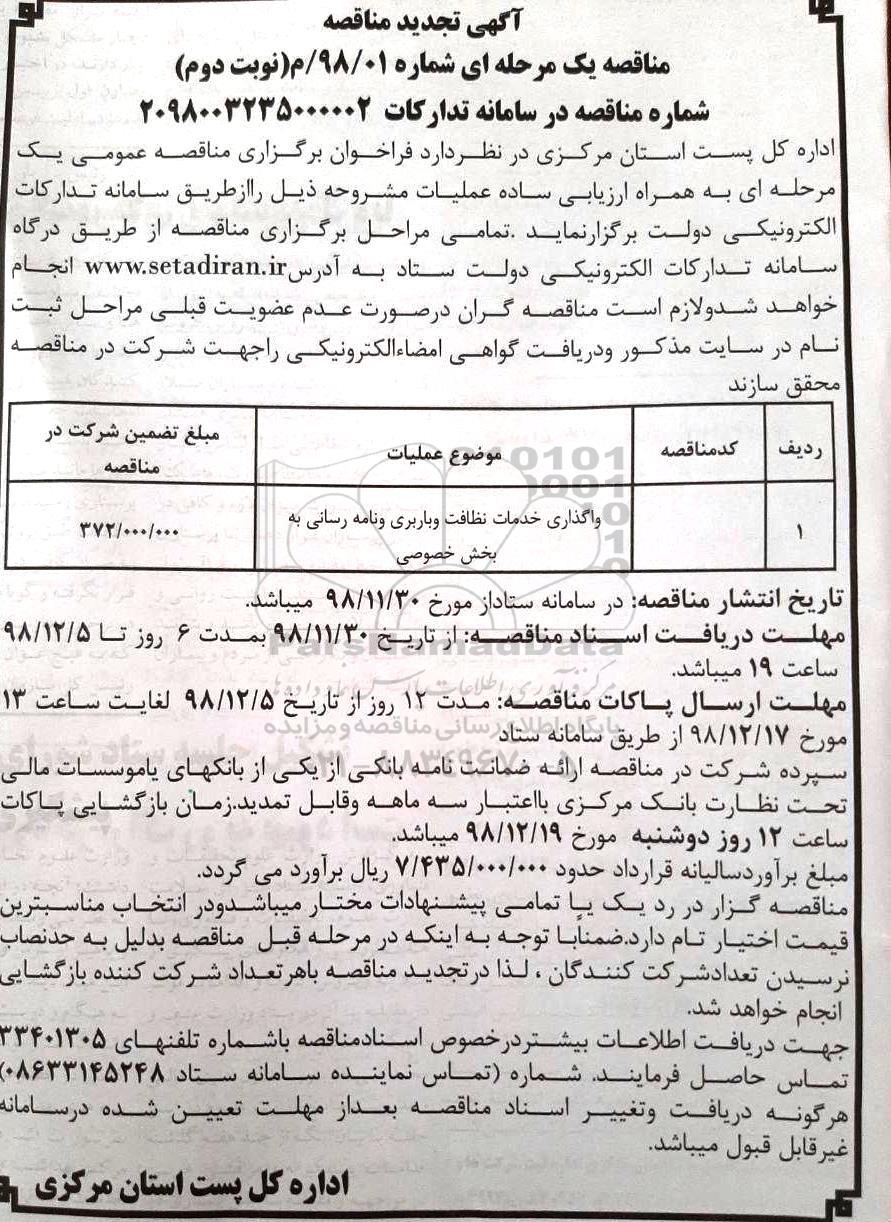 آگهی تجدید مناقصه
مناقصه یک مرحله ای شماره ۹۸/۰۱/م(نوبت دوم)
شماره مناقصه در سامانه تدارکات ۲۰۹۸۰۰۳۲۳۵۰۰۰۰۰۲
اداره کل پست استان مرکزی در نظردارد فراخوان برگزاری مناقصه عمومی یک
مرحله ای به همراه ارزیابی ساده عملیات مشروحه ذیل راازطریق سامانه تدارکات
الکترونیکی دولت برگزارنماید .تمامی مراحل برگزاری مناقصه از طریق درگاه
سامانه تدارکات الکترونیکی دولت ستاد به آدرسwww.setadiran.ir انجام
خواهد شدولازم است مناقصه گران درصورت عدم عضویت قبلی مراحل ثبت
نام در سایت مذکور ودریافت گواهی امضاءالکترونیکی راجهت شرکت در مناقصه
محقق سازند
ردیف کدمناقصه موضوع عملیات مبلغ تضمین شرکت در
مناقصه
۱ واگذاری خدمات نظافت وباربری ونامه رسانی به ۳۷۲/۰۰۰/۰۰۰
بخش خصوصی
تاریخ انتشار مناقصه: در سامانه ستاداز مورخ ۹۸/۱۱/۳۰ میباشد.
مهلت دریافت اسناد مناقصه: از تاریخ ۹۸/۱۱/۳۰ بمدت ۶ روز تا ۹۸/۱۲/۵
ساعت ۱۹ میباشد.
مهلت ارسال پاکات مناقصه: مدت ۱۲ روز از تاریخ ۹۸/۱۲/۵ لغایت ساعت ۱۳
مورخ ۹۸/۱۲/۱۷ از طریق سامانه ستاد
سپرده شرکت در مناقصه ارائه ضمانت نامه بانکی از یکی از بانکهای یاموسسات مالی
تحت نظارت بانک مرکزی بااعتبار سه ماهه وقابل تمدید.زمان بازگشایی پاکات
ساعت ۱۲ روز دوشنبه مورخ ۹۸/۱۲/۱۹ میباشد.
مبلغ برآوردسالیانه قرارداد حدود ۷/۴۳۵/۰۰۰/۰۰۰ ریال برآورد می گردد.
مناقصه گزار در رد یک یا تمامی پیشنهادات مختار میباشدودر انتخاب مناسبترین
قیمت اختیار تام دارد.ضمناًبا توجه به اینکه در مرحله قبل مناقصه بدلیل به حدنصاب
نرسیدن تعدادشرکت کنندگان ، لذا درتجدید مناقصه باهرتعداد شرکت کننده بازگشایی
انجام خواهد شد.
جهت دریافت اطلاعات بیشتردرخصوص اسنادمناقصه باشماره تلفنهای ۳۳۴۰۱۳۰۵
تماس حاصل فرمایند. شماره (تماس نماینده سامانه ستاد ۰۸۶۳۳۱۴۵۲۴۸)
هرگونه دریافت وتغییر اسناد مناقصه بعداز مهلت تعیین شده درسامانه
غیرقابل قبول میباشد.
اداره کل پست استان مرکزی
ParsNamadData
پایگاه اطلاع رسانی مناقصه و مزایده